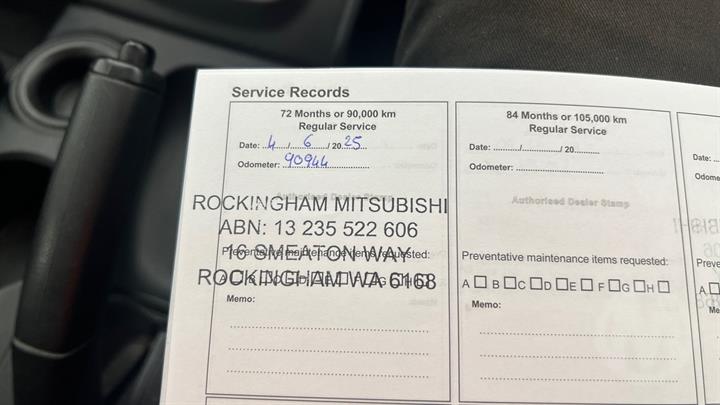 Service Records
72 Months or 90,000 km
Regular Service
Date: 4 / 6 / 20 25
Odometer: 90944
Authorised Dealer Stamp
ROCKINGHAM MITSUBISHI
ABN: 13 235 522 606
16 SMEATON WAY
Preventative maintenance items requested:
ROCKINGHAM WA 6168
Memo:
84 Months or 105,000 km
Regular Service
Date: ........../........../ 20..........
Odometer: ................................
Authorised Dealer Stamp
Preventative maintenance items requested:
A ☐ B ☐ C ☐ D ☐ E ☐ F ☐ G ☐ H ☐
Memo:
Date:
Odome
Preve
A ☐
Me